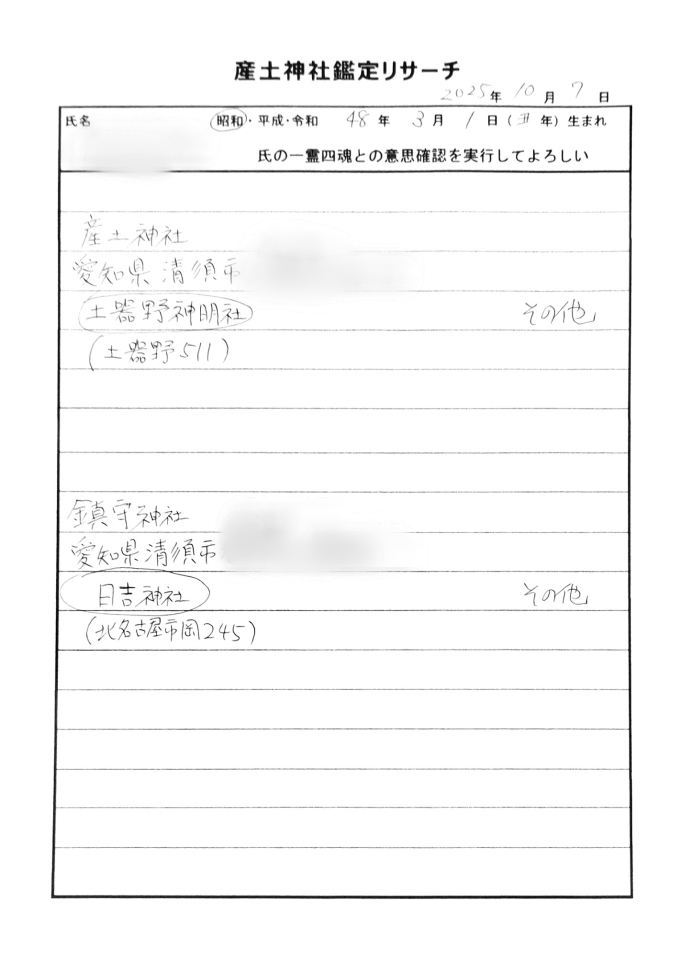 産土神社鑑定リサーチ
2025年 10月 7日
氏名 昭和・平成・令和 48年 3月 1日(丑年)生まれ
氏の一霊四魂との意思確認を実行してよろしい
産土神社
愛知県清須市
土器野神明社 その他
(土器野511)
鎮守神社
愛知県清須市
日吉神社 その他
(北名古屋市岡245)